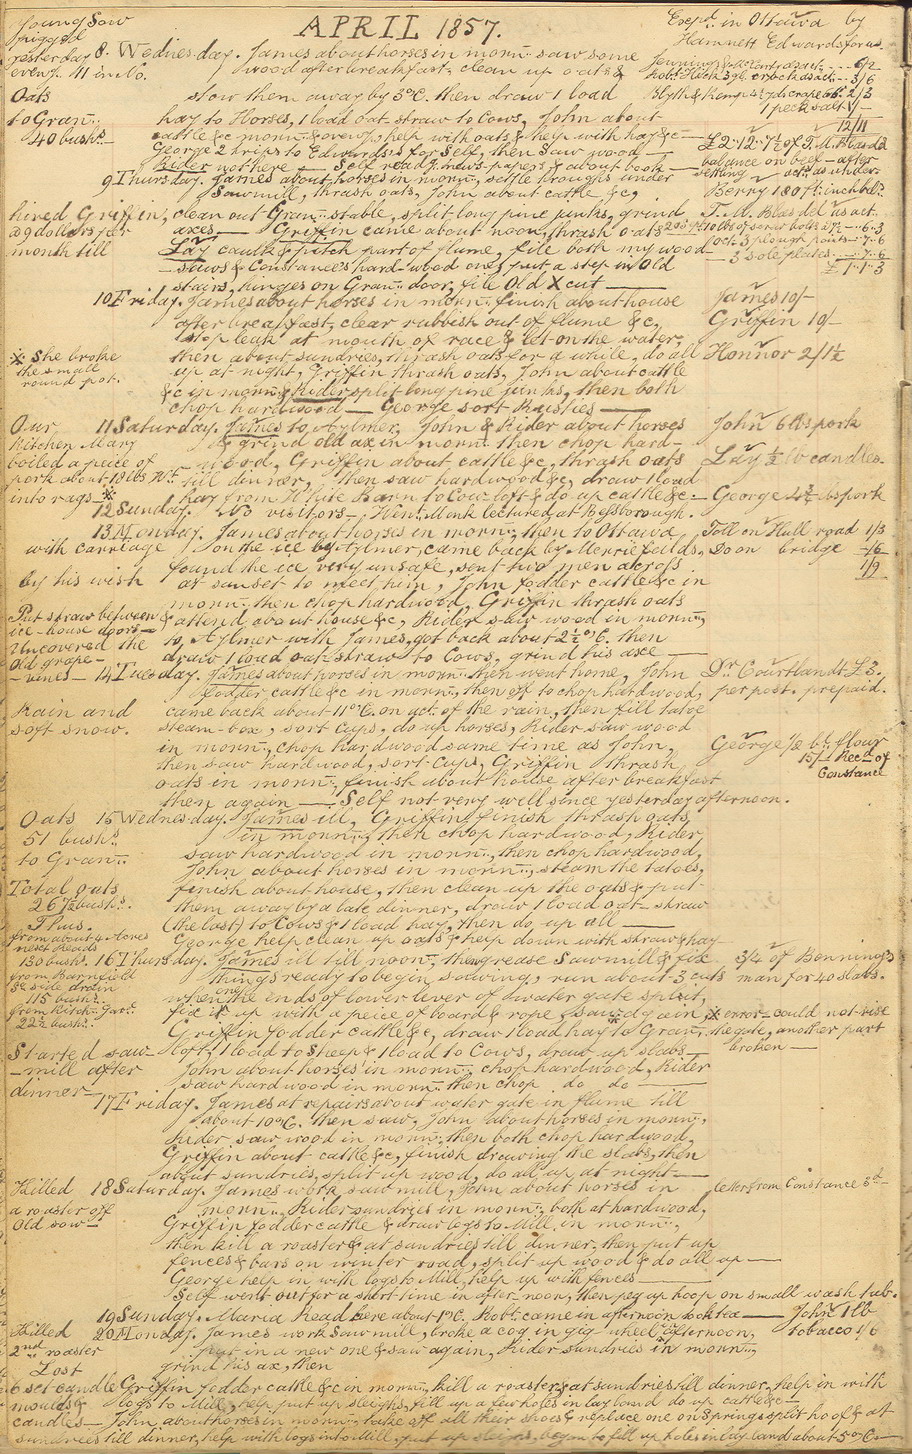 APRIL 1857.
Young Sow
pigged
yesterday
even'g. 11 in No.
8. Wednes-day. James about horses in morn:- saw some
wood after breakfast, clean up oats &
Oats
to Gran::
40 bushs.
stow them away by 3 o'C. then draw 1 load
hay to Horses, 1 load oat straw to Cows, John about
cattle &c morn:- & even'g, help with oats & help with hay &c —
George 2 trips to Edwards's for Self, then saw wood —
Rider not here — Self read news-papers & about book —
9 Thursday. James about horses in morn:, settle troughs under
Sawmill, thrash oats, John about cattle &c,
hired Griffin,
a 9 dollars per
month till
clean out Gran:: stable, split long pine junks, grind
axes — Griffin came about noon, thrash oats
Lay caulk & pitch part of flume, file both my wood
- saws & Constance's hard-wood one, put a step in Old
stairs, hinges on Gran:: door, file Old X cut —
10 Friday. James about horses in morn:. finish about house
after breakfast, clear rubbish out of flume &c,
stop leak at mouth of race & let on the water,
※ She broke
the small
round pot.
then about sundries, thrash oats for a while, do all
up at night, Griffin thrash oats, John about cattle
&c in morn:, & Rider split long pine junks, then both
chop hardwood — George sort Rusties —
Our
Kitchen Mary
boiled a piece of
pork about 18 lbs Wt.
into rags — ※
11 Saturday. James to Aylmer, John & Rider about horses
& grind old ax in morn:: then chop hard-
- wood, Griffin about cattle &c, thrash oats
till dinner, then saw hardwood &c, draw 1 load
hay from White Barn to Cow loft & do up cattle &c —
12 Sunday. No visitors —, Hen: Monk lectured at Bessborough.
13 Monday. James about horses in morn:; then to Ottawa
with carriage on the ice by Aylmer, came back by Merrifields,
found the ice very unsafe, sent two men across
by his wish
at sunset to meet him, John fodder cattle &c in
morn:: then chop hardwood, Griffin thrash oats
Put straw between
ice-house doors —
Uncovered the
Old grape-
- vines —
& attend about house &c, Rider saw wood in morn::,
to Aylmer with James, got back about 2½ o'C. then
draw 1 load oat straw to Cows, grind his axe —
14 Tuesday. James about horses in morn:: then went home, John
fodder cattle &c in morn::, then off to chop hardwood,
Rain and
soft snow.
came back about 11 o'C. on act. of the rain, then fill tatoe
steam-box, sort Cups, do up horses, Rider saw wood
in morn::, chop hardwood same time as John,
then saw hardwood, sort Cups, Griffin thrash
oats in morn::, finish about house after breakfast
then again —. Self not very well since yesterday afternoon.
Oats
51 bushs.
to Gran::
15 Wednes-day. James ill, Griffin finish thrash oats
in morn::, then chop hardwood, Rider
saw hardwood in morn::, then chop hardwood,
John about horses in morn::, steam the tatoes,
Total oats
267½ bushs.
Thus.
from about 4 Acres
next Heads
130 bush:.
from Barnfield
Se side drain
115 bushs.
from Kitch: Gar:
22½ bushs.
finish about house, then clean up the oats & put
them away by a late dinner, draw 1 load oat- straw
(the last) to Cows & 1 load hay, then do up all —
George help clean up oats & help down with straw & hay —
16 Thursday. James ill till noon, then grease Sawmill & fix
things ready to begin sawing, run about 3 cuts
when one the ends of lower lever of water gate split,
fix it up with a piece of board & rope, saw again, ※
Griffin fodder cattle &c, draw 1 load hay to Gran::
Started saw-
- mill after
dinner —
loft, 1 load to Sheep & 1 load to Cows, draw up slabs —
John about horses in morn:, chop hardwood, Rider
saw hardwood in morn:: then chop do do —
17 Friday. James at repairs about water gate in flume till
about 10 o'C. then saw, John about horses in morn::,
Rider saw wood in morn::, then both chop hardwood,
Griffin about cattle &c, finish drawing the slabs, then
about sundries, split up wood, do all up at night —
Killed
a roaster off
Old sow —
18 Saturday. James work sawmill, John about horses in
morn::, Rider sundries in morn::, both at hardwood,
Griffin fodder cattle & draw logs to Mill in morn::,
then kill a roaster & at sundries till dinner, then put up
fences & bars on winter road, split up wood & do all up —
George help in with logs to Mill, help up with fences —
Self went out for a short time in after-noon, then peg up hoop on small wash tub.
19 Sunday. Maria Read here about 1 o'C. Robt. came in afternoon took tea —
Killed
2nd roaster
Lost
6 set candle
moulds &
candles —
20 Monday. James work Sawmill, broke a cog in gig wheel afternoon,
put in a new one & saw again, Rider sundries in morn::,
grind his ax, then
Griffin fodder cattle &c in morn::, kill a roaster & at sundries till dinner, help in with
logs to Mill, help put up sleighs, fill up a few holes in lay land do up cattle &c —
John about horses in morn::, take off all their shoes & replace one on Springs split hoof & at
sundries till dinner, help with logs into Mill, put up sleighs, begin to fill up holes in lay land about 5 o'C. —
Exep'd. in Ottawa by
Hamnett Edwards for us
Jennings & McCarts act ... 6/2
Robt. Heck 3 gl. crock as act ... 3/6
Blyth & Kemp 4½ yds crape 6d. 2/3
1 peck salt 1/-
12/11
£2.12.7½ of T. M. Blasdel
balance on beef — after
setling — act. as under
Berry 180 ft. inch bds.
T. M. Blasdel as act.
20s pd. 10 lbs of scrw bolts a 7½ - .. 6.3
Oct. 3 plough points - 7.6
3 sole plates .. - .. 7.6
£ 1.1.3
James 10/-
Griffin 10/-
Honnor 2/1½
John 6 lbs pork
Lay ½ lb candles.
George 4¾ lbs pork
Toll on Hull road 1/3
Do on bridge -/6
1/9
Dr. Courtlandt £3.
per post. prepaid.
George ½ bl. flour
15/- Recd of
Constance
3/4 of Benning's
man for 40 slabs.
※ error - could not rise
the gate, another part
broken —
letter from Constance 3d —
John 1 lb
tobacco 1/6